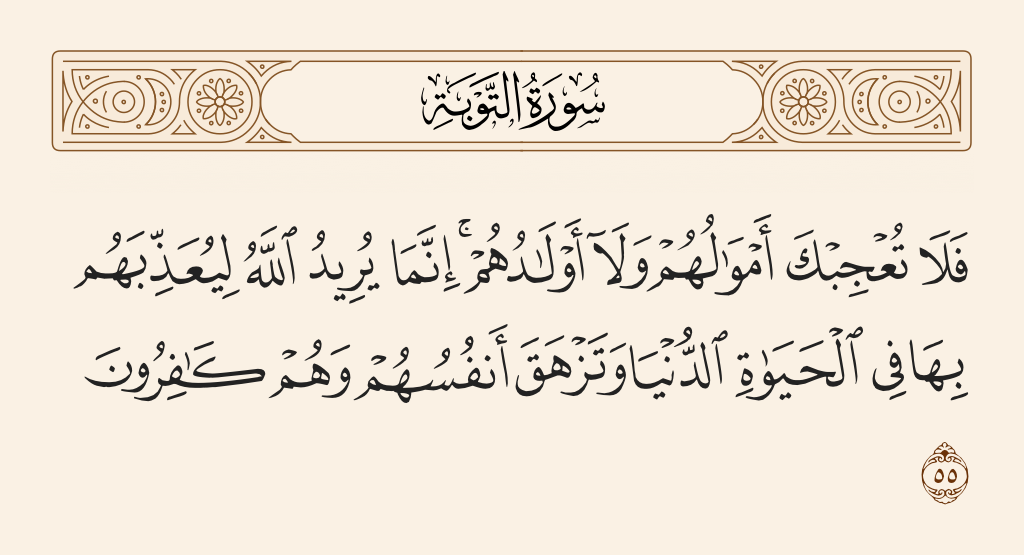 سُورَةُ التَّوۡبَةِ
فَلَا تُعۡجِبۡكَ أَمۡوَٰلُهُمۡ وَلَآ أَوۡلَٰدُهُمۡۚ إِنَّمَا يُرِيدُ ٱللَّهُ لِيُعَذِّبَهُم
بِهَا فِي ٱلۡحَيَوٰةِ ٱلدُّنۡيَا وَتَزۡهَقَ أَنفُسُهُمۡ وَهُمۡ كَٰفِرُونَ
٥٥